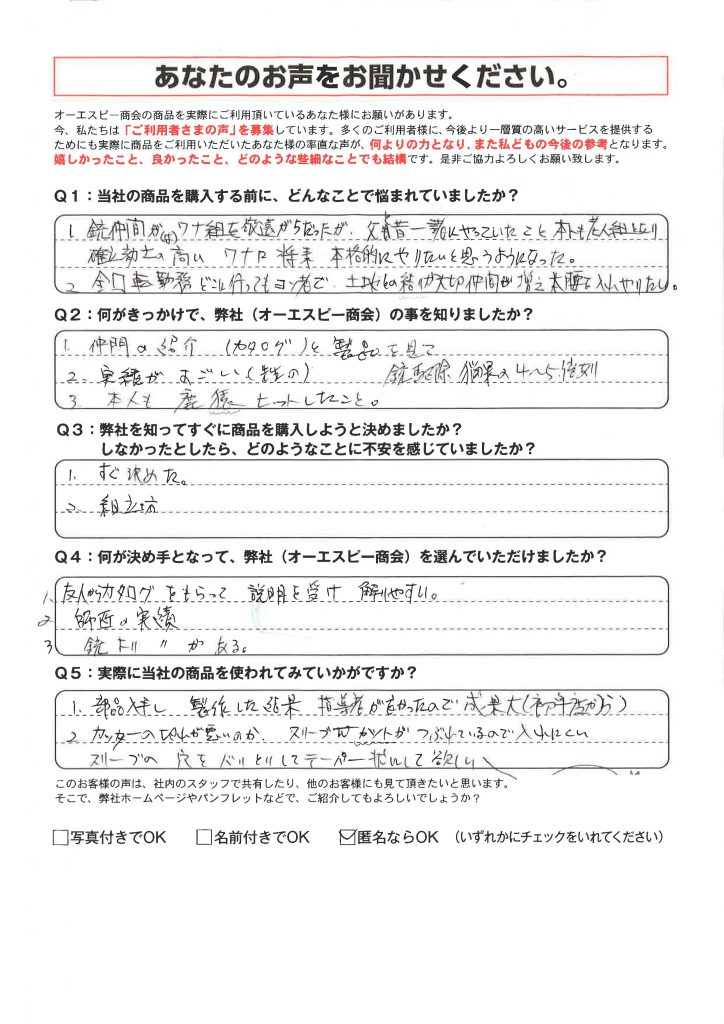 あなたのお声をお聞かせください。
オーエスピー商会の商品を実際にご利用頂いているあなた様にお願いがあります。
今、私たちは「ご利用者さまの声」を募集しています。多くのご利用者様に、今後より一層質の高いサービスを提供する
ためにも実際に商品をご利用いただいたあなた様の率直な声が、何よりの力となり、また私どもの今後の参考となります。
嬉しかったこと、良かったこと、どのような些細なことでも結構です。是非ご協力よろしくお願い致します。
Q1：当社の商品を購入する前に、どんなことで悩まれていましたか？
1. 銃仲間が ワナ組を敬遠がちだったが、昔一緒にやっていたこと 本人も老人組となり
確立効率の高い ワナに 将来 本格的にやりたいと思うようになった。
2. 全国転勤務 どこに行ってもヨソ者で、土地との 大切 仲間が増え 本腰を入れやりたい。
Q2：何がきっかけで、弊社（オーエスピー商会）の事を知りましたか？
1. 仲間の紹介 （カタログ）と 製品を見て
2. 実績がすごい 銃駆除 猟果の4〜5倍
3. 本人も 鹿猿 ヒットしたこと。
Q3：弊社を知ってすぐに商品を購入しようと決めましたか？
しなかったとしたら、どのようなことに不安を感じていましたか？
1. すぐ決めた。
2. 組立
Q4：何が決め手となって、弊社（オーエスピー商会）を選んでいただけましたか？
1. 友人からカタログをもらって 説明を受け 解りやすい。
2 師匠の実績
3 銃より 〃 がある。
Q5：実際に当社の商品を使われてみていかがですか？
1. 部品入手し 製作した結果 指導者が良かったので 成果大（初年度から）
2. カッターの切れが悪いのか、スリーブやカットがつぶれているので入れにくい
スリーブの 穴を バリとりしてテーパー 状にして欲しい
このお客様の声は、社内のスタッフで共有したり、他のお客様にも見て頂きたいと思います。
そこで、弊社ホームページやパンフレットなどで、ご紹介してもよろしいでしょうか？
□写真付きでOK □名前付きでOK ☑匿名ならOK （いずれかにチェックをいれてください）